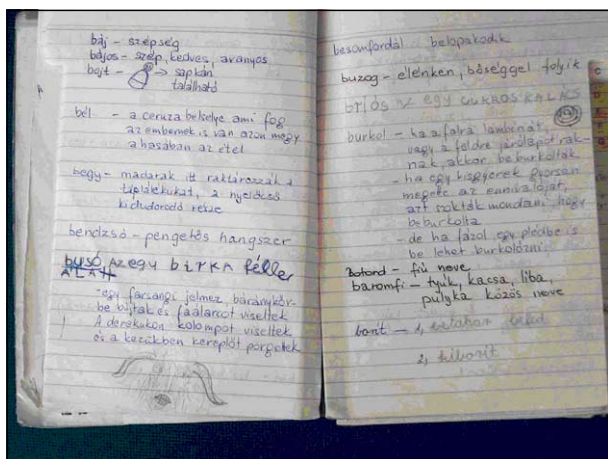 báj - szépség
bájos - szép, kedves, aranyos
bojt - → sapkán
található
bél - a ceruza belseje ami fog
az embernek is van azon megy
a hasában az étel
begy - madarak itt raktározzák a
táplálékukat, a nyelőcső
kidudorodó része
bendzsó - pengetős hangszer
busó AZ EGY bIRKA féller
ALAH
- egy farsangi jelmez, báránybőr-
be bújtak és faálarcot viseltek
A derekukon kolompot viseltek
és a kezükben kereplőt pörgetek
besomfordál belopakodik
buzog - élénken, bőséggel folyik
briós AZ EGY CUKROS KALÁCS
burkol - ha a falra lambériát,
vagy a földre járólapot rak-
nak, akkor beburkolták
- ha egy kisgyerek gyorsan
megette az ennivalóját,
azt szokták mondani, hogy
beburkolta
- de ha fázol, egy plédbe is
be lehet burkolózni
Botond - fiú neve
baromfi - tyúk, kacsa, liba,
pulyka közös neve
borít - 1, betakar befed
2, kiborít